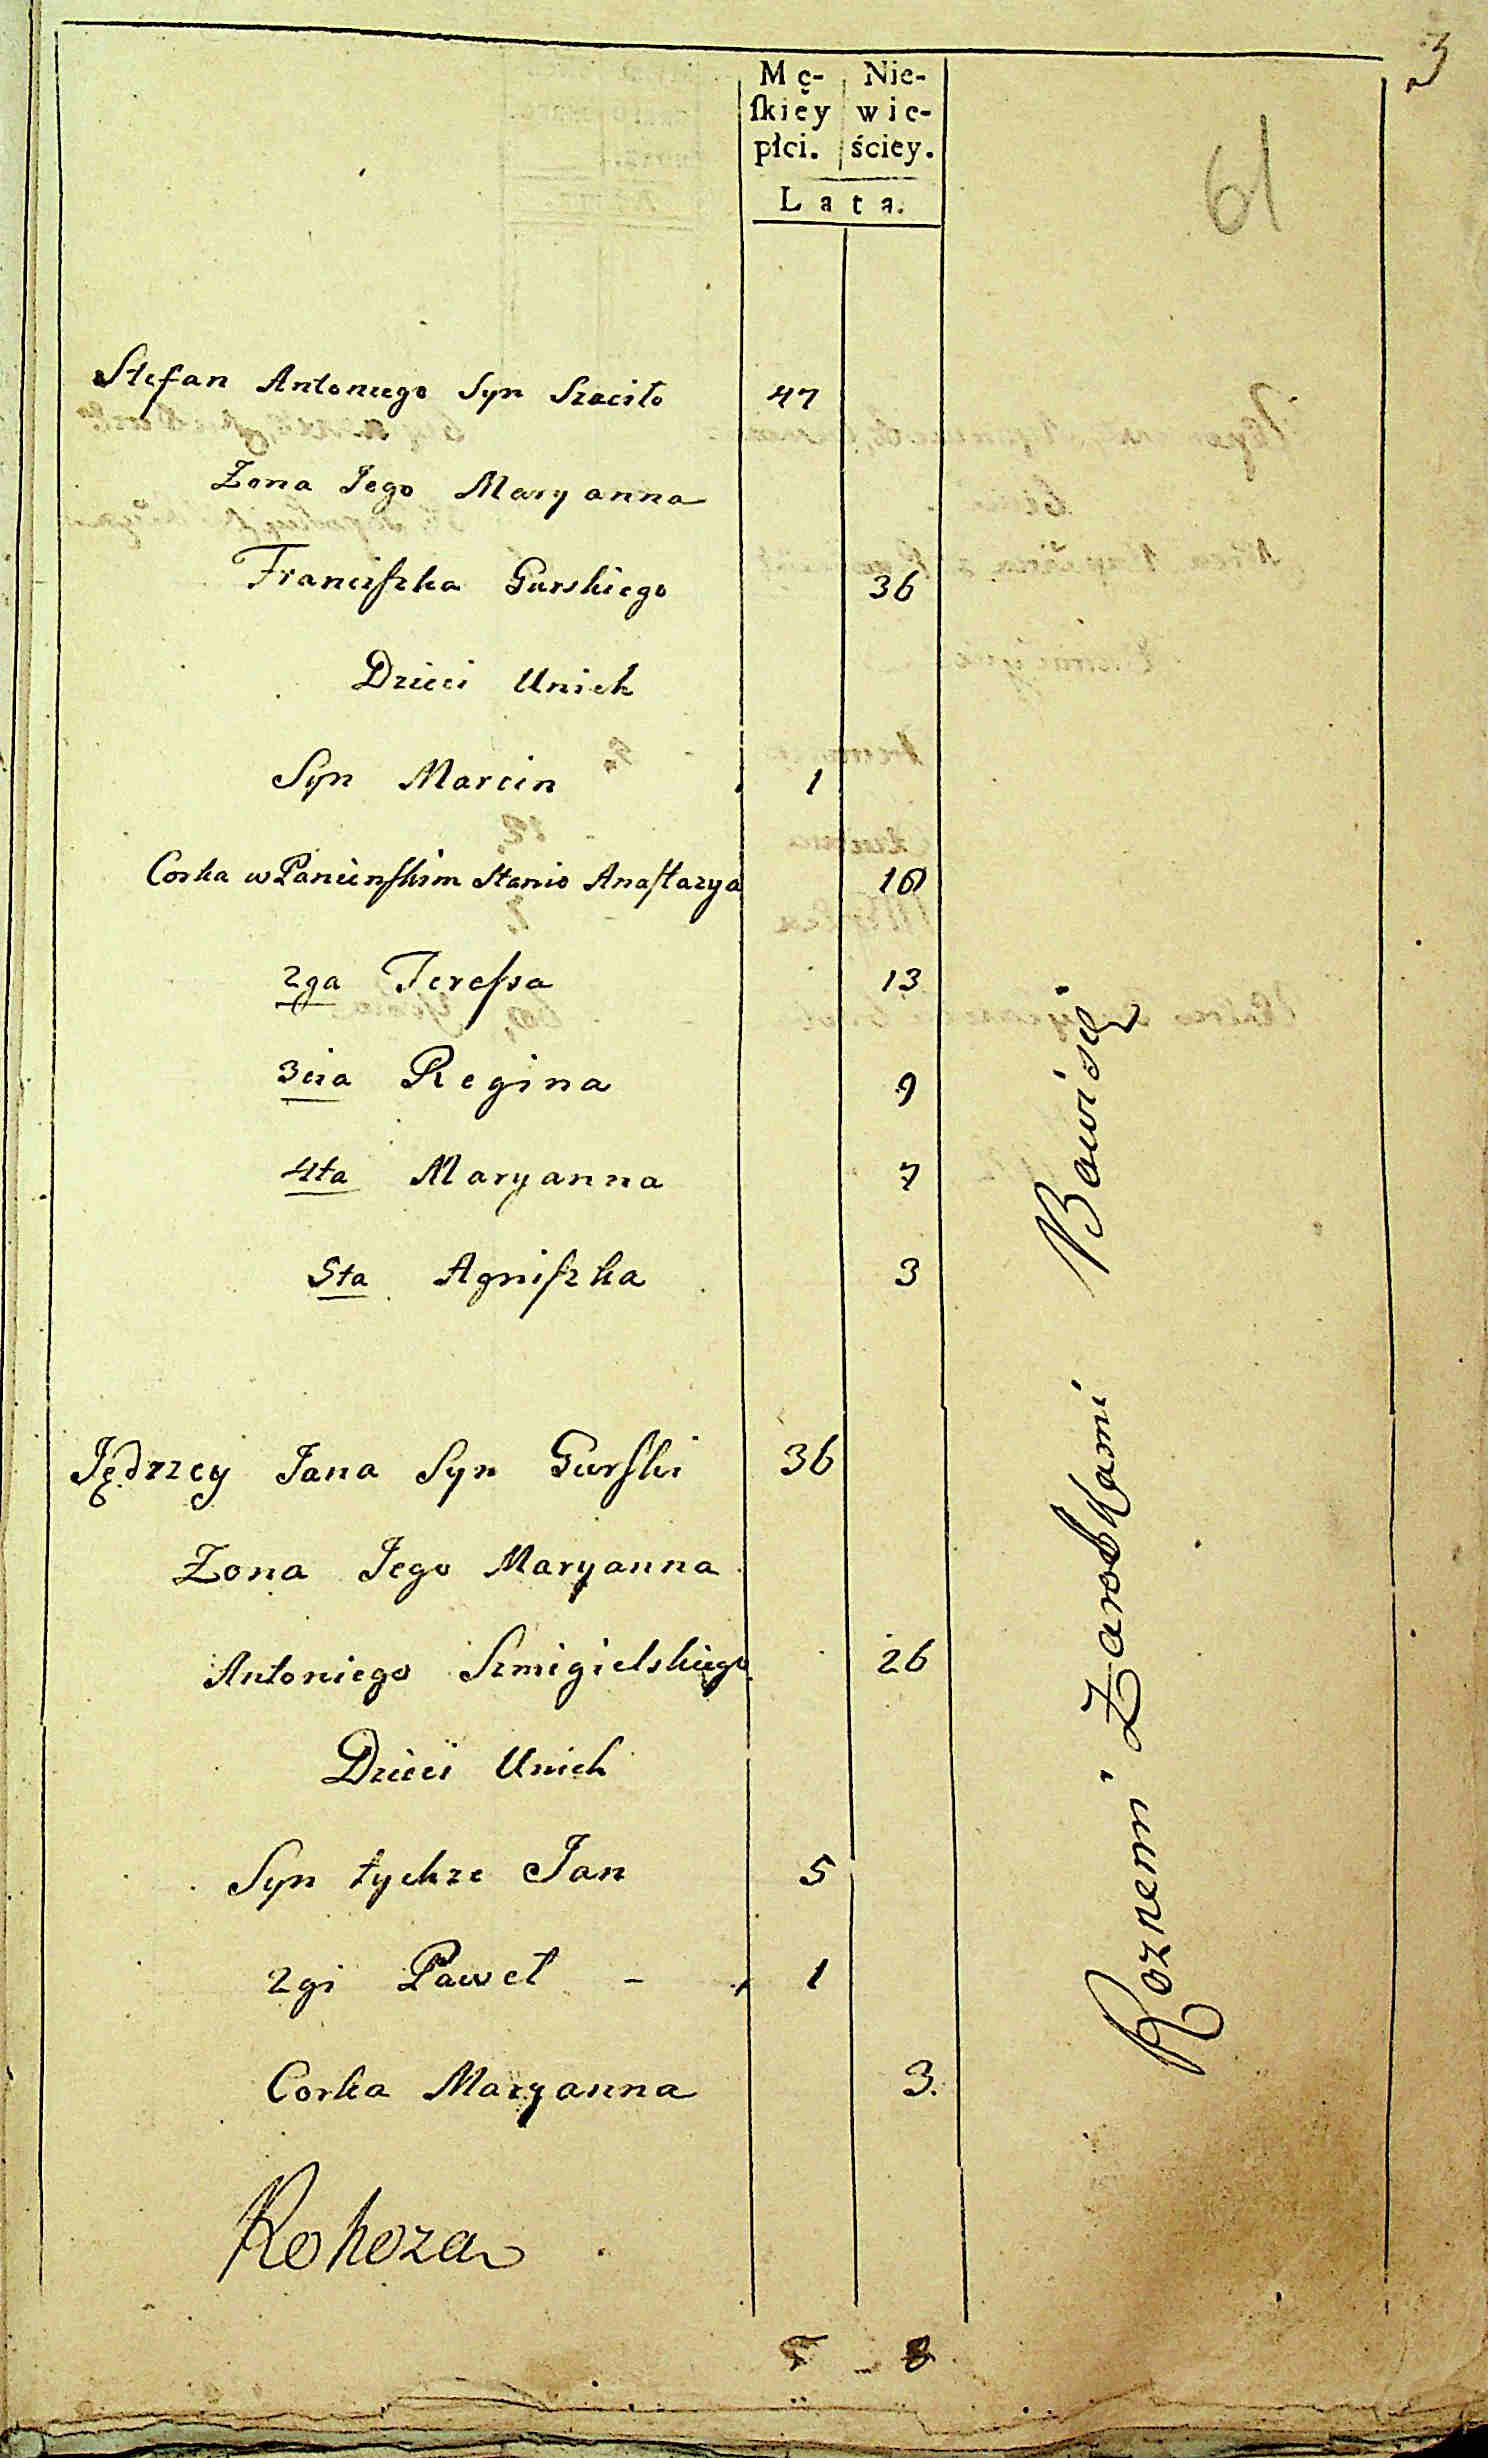 3
61
Mę- Nie-
ſkiey wie-
płci. ściey.
Lata.
Stefan Antoniego Syn Szaciło 47
Żona Jego Maryanna
Franciſzka Gurskiego 36
Dzieci Unich
Syn Marcin 1
Corka w Panieńſkim Stanie Anaſtazya 16
2ga Tereſsa 13
3cia Regina 9
4ta Maryanna 7
5ta Agniſzka 3
Jędrzey Jana Syn Gurſki 36
Żona Jego Maryanna
Antoniego Szmigielskiego 26
Dzieci Unich
Syn tychze Jan 5
2gi Paweł - 1
Corka Maryanna 3.
Rohoza
8
Roznemi Zarobkami Bawi się